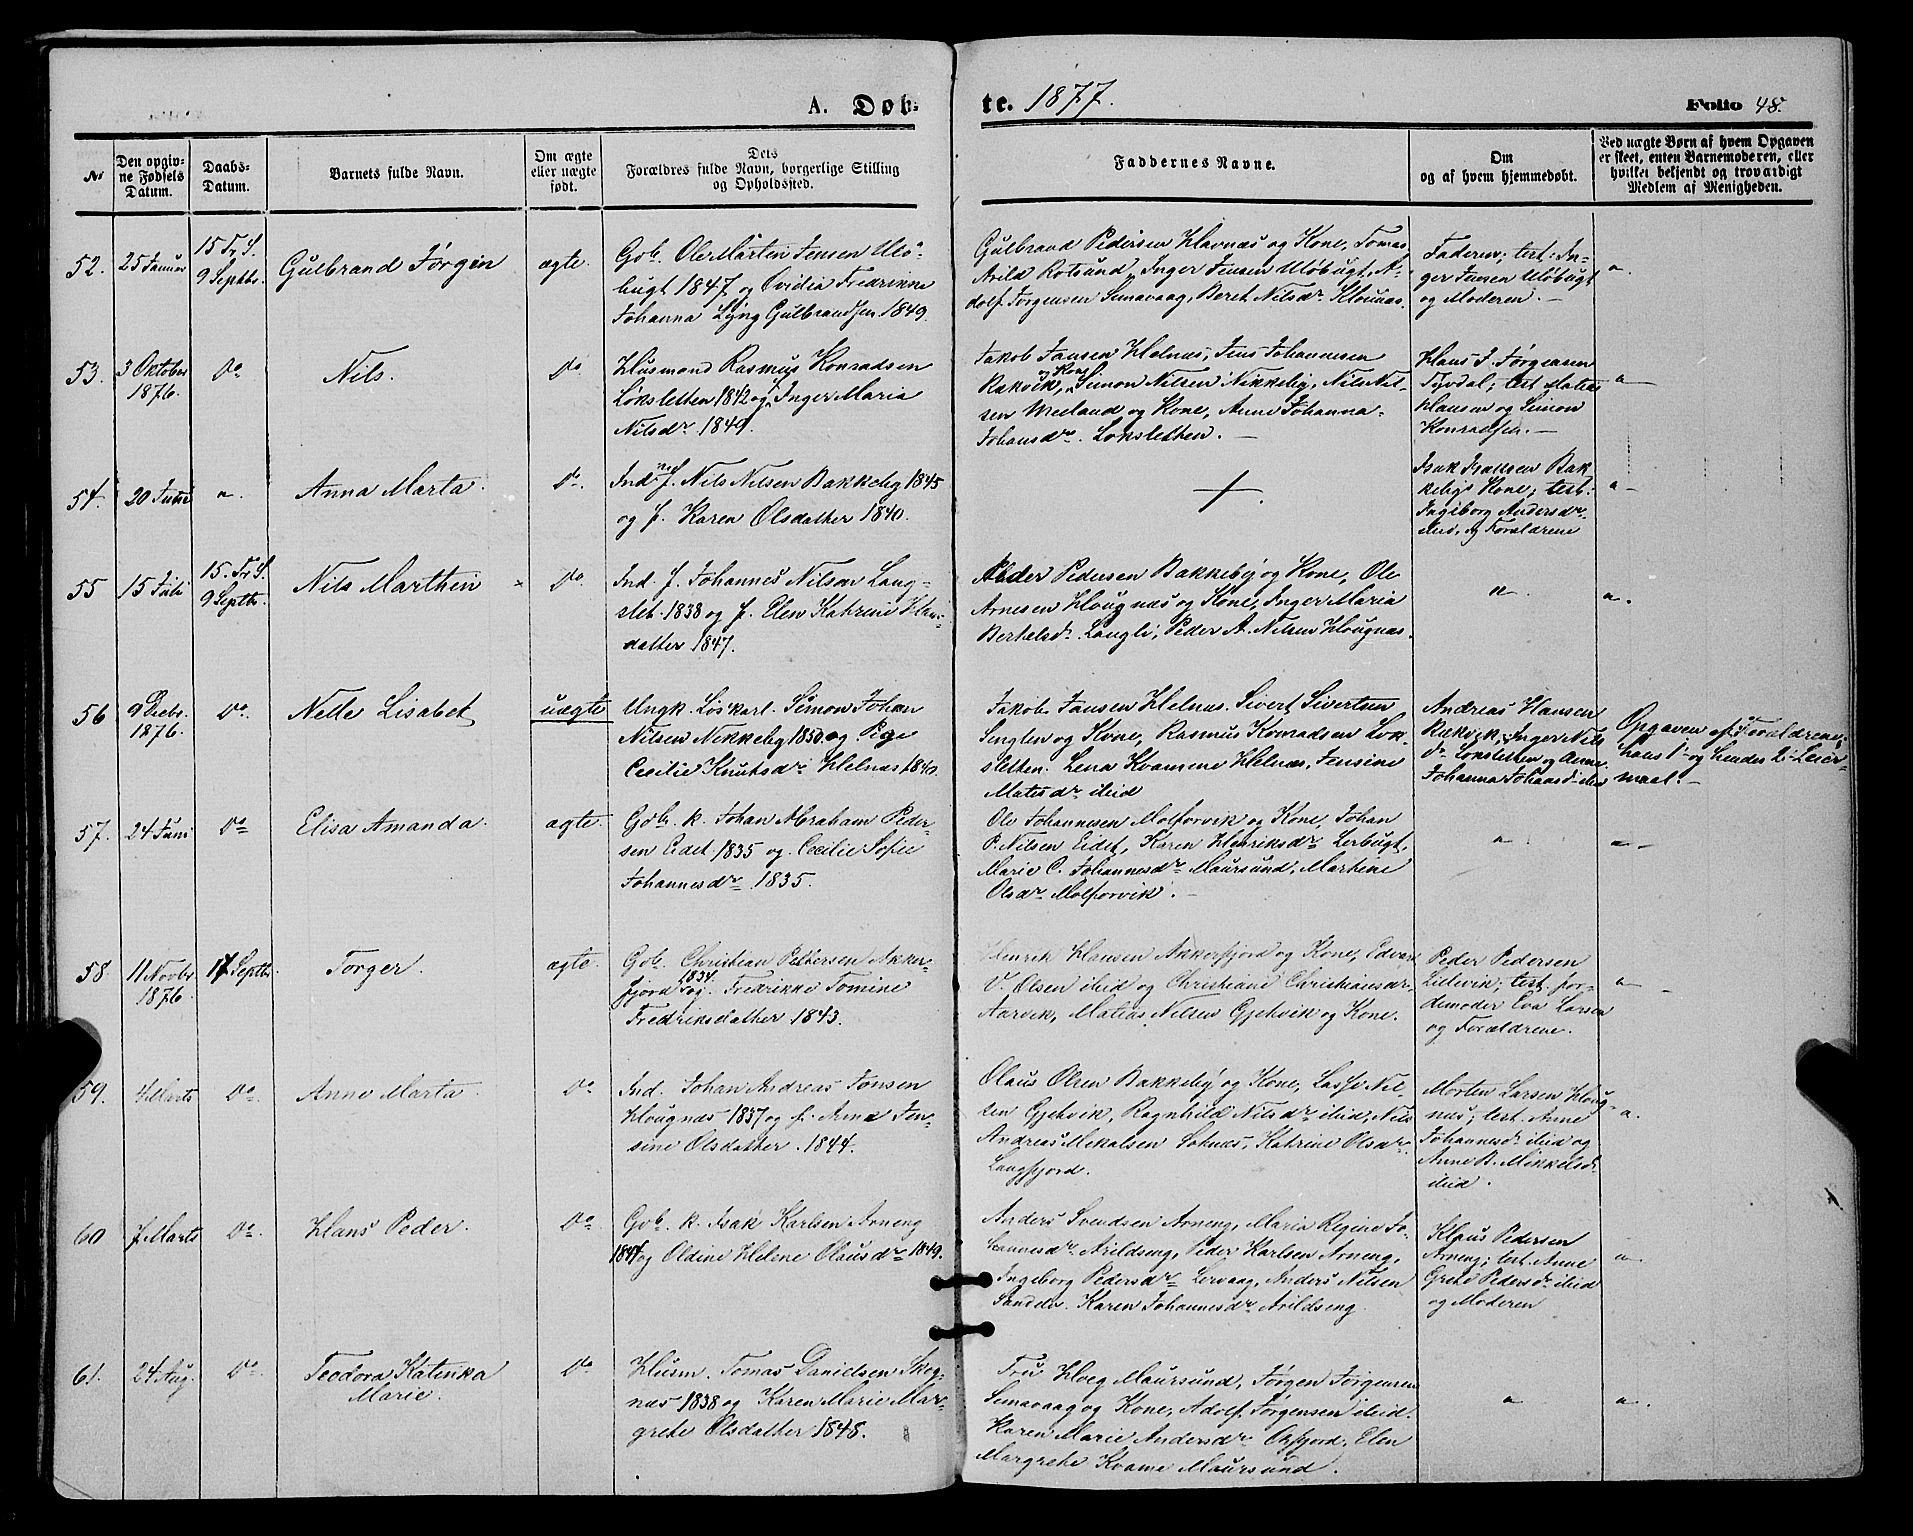 A. Døb-
te. 1877.
Folio 48.
No
Den opgiv-
ne Fødsels
Datum.
Daabs-
Datum.
Barnets fulde Navn.
Om ægte
eller uægte
født.
Dets
Forældres fulde Navn, borgerlige Stilling
og Opholdssted.
Faddernes Navne.
Om
og af hvem hjemmedøbt.
Ved uægte Børn af hvem Opgaven
er skeet, enten Barnemoderen, eller
hvilket bekjendt og troværdigt
Medlem af Menigheden.
52.
25 Januar
15 Tr. S.
9 Septbr.
Gulbrand Jørgen
ægte.
Gb. Ole Martin Jensen Ulø-
bugt 1847 og Ovidia Fredrikke
Johanna Lyng Gulbrandsen 1849.
Gulbrand Pedersen Havnæs og Kone, Tomas
Arild Rotsund, Inger Jensen Uløbugt, A-
dolf Jørgensen Simavaag, Beret Nilsdr.
Faderen; test: In-
ger Jensen Uløbugt
og Moderen. —
53.
3 Oktober
1876.
Do
Nils.
Do
Husmand Rasmus Konradsen
Loksletten 1842 og Inger Maria
Nilsdr. 1849.
Jakob Jansen Helnæs, Jens Johannesen
Rakvik, og Kone Simon Nilsen Nikkeby, Nils Nil-
sen Meeland og Kone, Anne Johanna
Johansdr. Loksletten. —
Hans J. Jørgensen
test Matias
Hansen og Simon
Konradsen. —
54.
20 Juni
Anna Marta.
Do.
Ind. f. Nils Nilsen Bakkeby 1845
og f. Karen Olsdatter 1840.
Isak Isaksen Bak-
kebys Kone; test:
Ingeborg Andersdr.
ibid, og Forældrene
55
15 Juli
15. Tr. S.
9 Septbr.
Nils Marthen
Do.
Ind. f. Johannes Nilsen Lang-
slet 1838 og f. Elen Katrine Hans-
datter 1847.
Peder Pedersen Bakkeby og Kone, Ole
Arnesen Hougnæs og Kone, Inger Maria
Bertelsdr. Langli, Peder A. Nilsen Hougnæs.
56
9 Decbr.
1876.
Do.
Nelle Lisabet
uægte
Ungk. Løskarl. Simon Johan
Nilsen Nikkeby 1850. og Pige
Cecilie Knutsdr. Helnæs 1840.
Jakob Jansen Helnæs. Sivert Sivertsen
Singlen og Kone, Rasmus Konradsen Lok-
sletten. Lena Kvamene Helnæs, Jensine
Matisdr. ibid
Andreas Hansen
Rakvik, Inger Nils
dr. Loksletten og Anne
Johanna Johansdr. ibid
Opgaven af Forældrene;
hans 1ste og hendes 2det Leier-
maal. —
57.
24 Juni
Do
Elisa Amanda.
ægte.
Gb. k. Johan Abraham Peder-
sen Eidet 1835 og Cecilie Sofie
Johannesdr. 1835.
Ole Johannesen Molforvik og Kone, Johan
P. Nilsen Eidet, Karen Henriksdr. Lerbugt,
Marie C. Johannesdr. Maursund, Martine
Olsdr. Molforvik. —
58
11 Novbr.
1876.
17 Septbr.
Torger.
ægte.
Gb. Christian Pettersen Akker-
fjord 1834. og. Fredrikke Tomine
Fredriksdatter 1843.
Henrik Hansen Akkerfjord og Kone, Edvart
V. Olsen ibid og Christiane Christiansdr.
Aarvik, Matias Nilsen Gjøvik og Kone.
Peder Pedersen
Lillevik; test. Jor-
demoder Eva Larsen
og Forældrene.
59.
4 Marts
Do.
Anne Marta.
Do
Ind. Johan Andreas Jonsen
Hougnæs 1837 og f. Anne Jen-
sine Olsdatter. 1844.
Olaus Olsen Bakkeby og Kone, Lasse Nil-
sen Gjøvik, Ragnhild Nilsdr. ibid, Nils
Andreas Mikalsen Soknæs, Katrine Olsdr.
Langfjord.
Morten Larsen Houg-
næs; test. Anne
Johannesdr. ibid og
Anne B. Mikkelsdr.
ibid.
60
7 Marts
Do.
Hans Peder.
Do.
Gb. k. Isak Karlsen Arneng
og Oldine Helene Olausdr. 1849.
Anders Svendsen Arneng, Maria Regine Jo-
hannesdr. Arildseng, Peder Karlsen Arneng,
Ingeborg Pedersdr. Lervaag, Anders Nilsen
Karen Johannesdr. Arildseng.
Klaus Pedersen
Arneng; test. Anne
Grete Pedersdr. ibid
og Moderen
61.
24 Aug.
Do.
Teodora Katinka
Marie.
Do
Husm. Tomas Danielsen Skog-
næs 1838 og Karen Marie Mar-
grete Olsdatter 1848.
Fru Hveg Maursund, Jørgen Jørgensen
Simavaag og Kone, Adolf Jørgensen ibid.
Karen Marie Andersdr. Oxfjord, Elen
Margrethe Kvame Maursund.